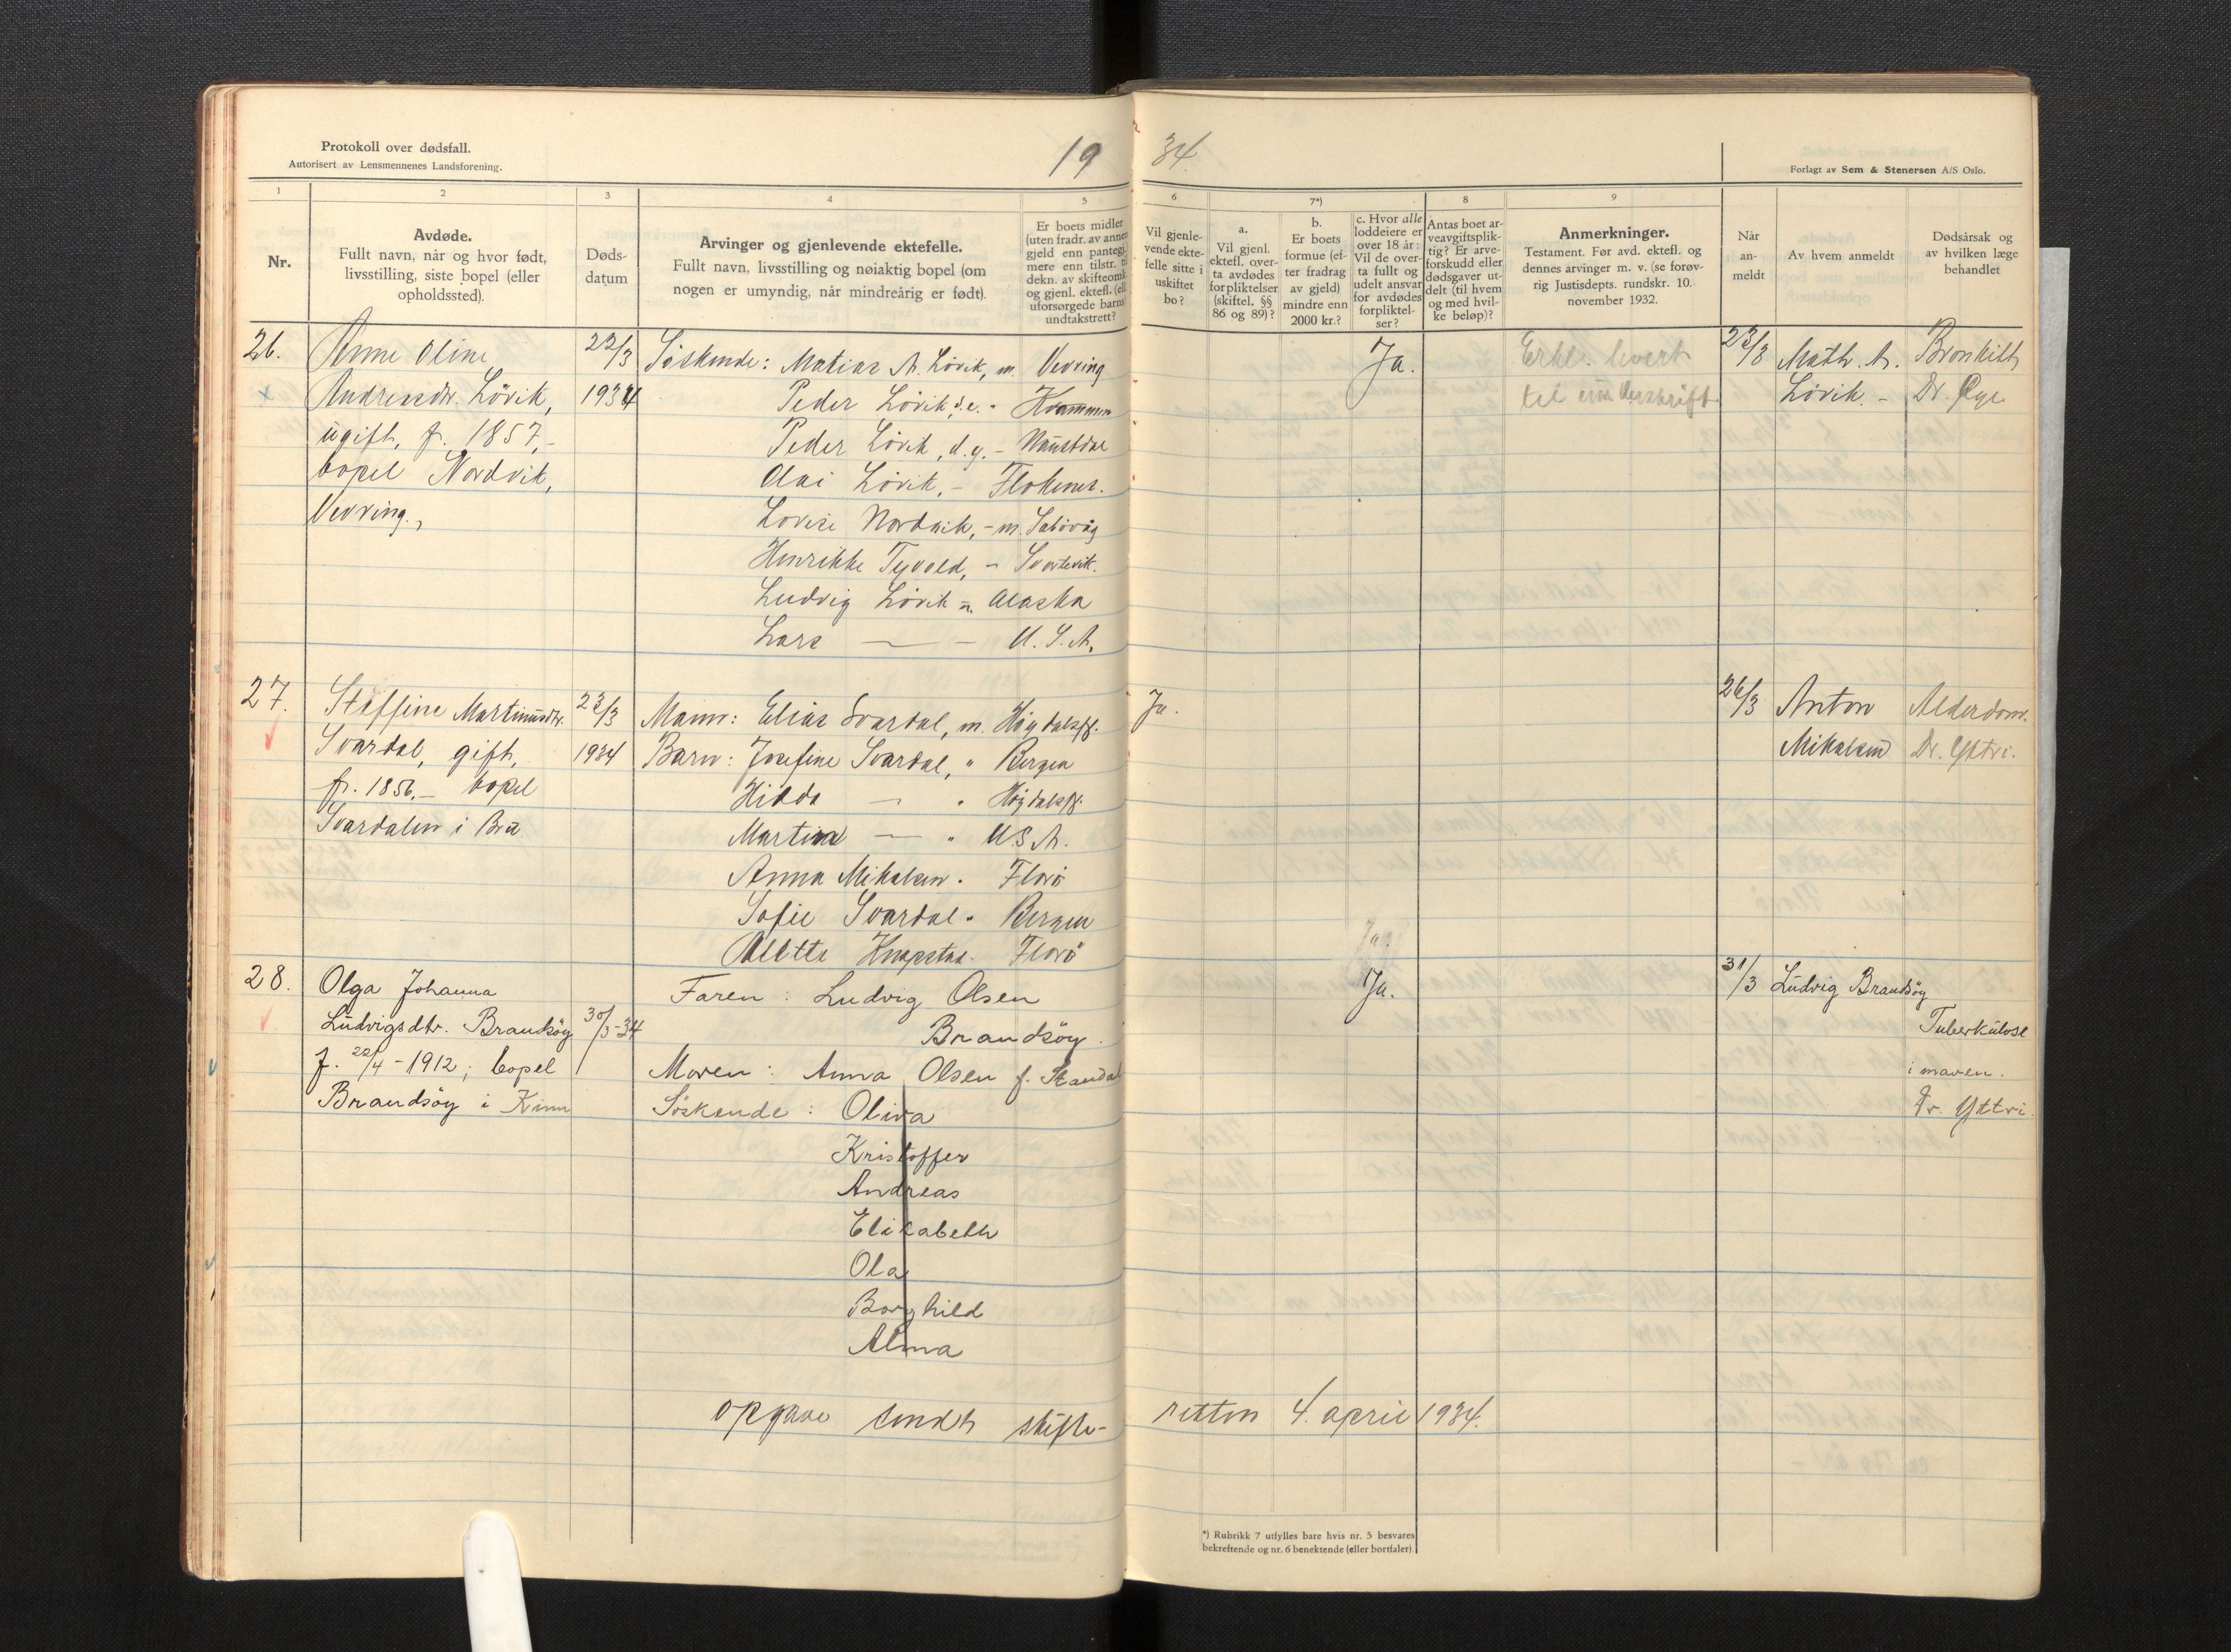 Protokoll over dødsfall.
Autorisert av Lensmennenes Landsforening.
19 34.
Forlagt av Sem & Stenersen A/S Oslo.
1 2 3 4 5 6 7*) 8 9
Nr.
Avdøde.
Fullt navn, når og hvor født,
livsstilling, siste bopel (eller
opholdssted).
Døds-
datum
Arvinger og gjenlevende ektefelle.
Fullt navn, livsstilling og nøiaktig bopel (om
nogen er umyndig, når mindreårig er født).
Er boets midler
(uten fradr. av annen
gjeld enn pantegj.)
mere enn tilstr. til
dekn. av skifteomk.
og gjenl. ektefl. (ell.
uforsørgede barns)
undtakstrett?
Vil gjenle-
vende ekte-
felle sitte i
uskiftet
bo?
a.
Vil gjenl.
ektefl. over-
ta avdødes
forpliktelser
(skiftel. §§
86 og 89)?
b.
Er boets
formue (ef-
ter fradrag
av gjeld)
mindre enn
2000 kr.?
c. Hvor alle
loddeiere er
over 18 år:
Vil de over-
ta fullt og
udelt ansvar
for avdødes
forpliktel-
ser?
Antas boet ar-
veavgiftsplik-
tig? Er arve-
forskudd eller
dødsgaver ut-
delt (til hvem
og med hvil-
ke beløp)?
Anmerkninger.
Testament. Før avd. ektefl. og
dennes arvinger m. v. (se forøv-
rig Justisdepts. rundskr. 10.
november 1932.
Når
an-
meldt
Av hvem anmeldt
Dødsårsak og
av hvilken læge
behandlet
26.
Anne Oline
Andreasdtr. Lövik,
ugift, f. 1857,-
bopel Nordvik,
Vevring.,
22/3
1934
Søskende: Matias A. Lövik, m. Vevring
Peder Lövik, d.e. - Kvammen
Peder Lövik, d.y. - Naustdal
Olai Lövik, - Flokenes.
Lovise Nordvik, - m.
Henrikke - Svortevik.
Ludvig Lövik Alaska
Lars — - U.S.A.
Ja.
Erkl. levert
til underskrift.
23/3
Math. A.
Lövik. -
Bronkitt
Dr.
27.
Steffine Martinusdtr.
Svardal, gift,
f. 1856,- bopel
Svardalen i Bru
23/3
1934
Mann: Elias Svardal, m. Høydalsfj.
Barn: Josefine Svardal, " Bergen
Hilda — " Høydalsfj.
Martin — " U.S.A.
Anna Mikalsen. Florö
Sofie Svardal. Bergen
Alette Knapstad. Florö
Ja.
26/3
Anton
Mikalsen
Alderdom.
Dr. Yttri.
Ja
28.
Olga Johanna
Ludvigsdtr. Brandsöy
f. 22/4-1912; bopel
Brandsöy i Kinn
30/3-34
Faren : Ludvig Olsen
Brandsöy.
Moren : Anna Olsen f. Standal
Söskende : Oliva
Kristoffer
Andreas
Elisabeth
Ola
Borghild
Alma
Ja.
31/3
Ludvig Brandsöy
Tuberkulose
i maven.
Dr. Yttri.
opgave sendt skifte-
retten 4. april 1934.
*) Rubrikk 7 utfylles bare hvis nr. 5 besvares
bekreftende og nr. 6 benektende (eller bortfaler)